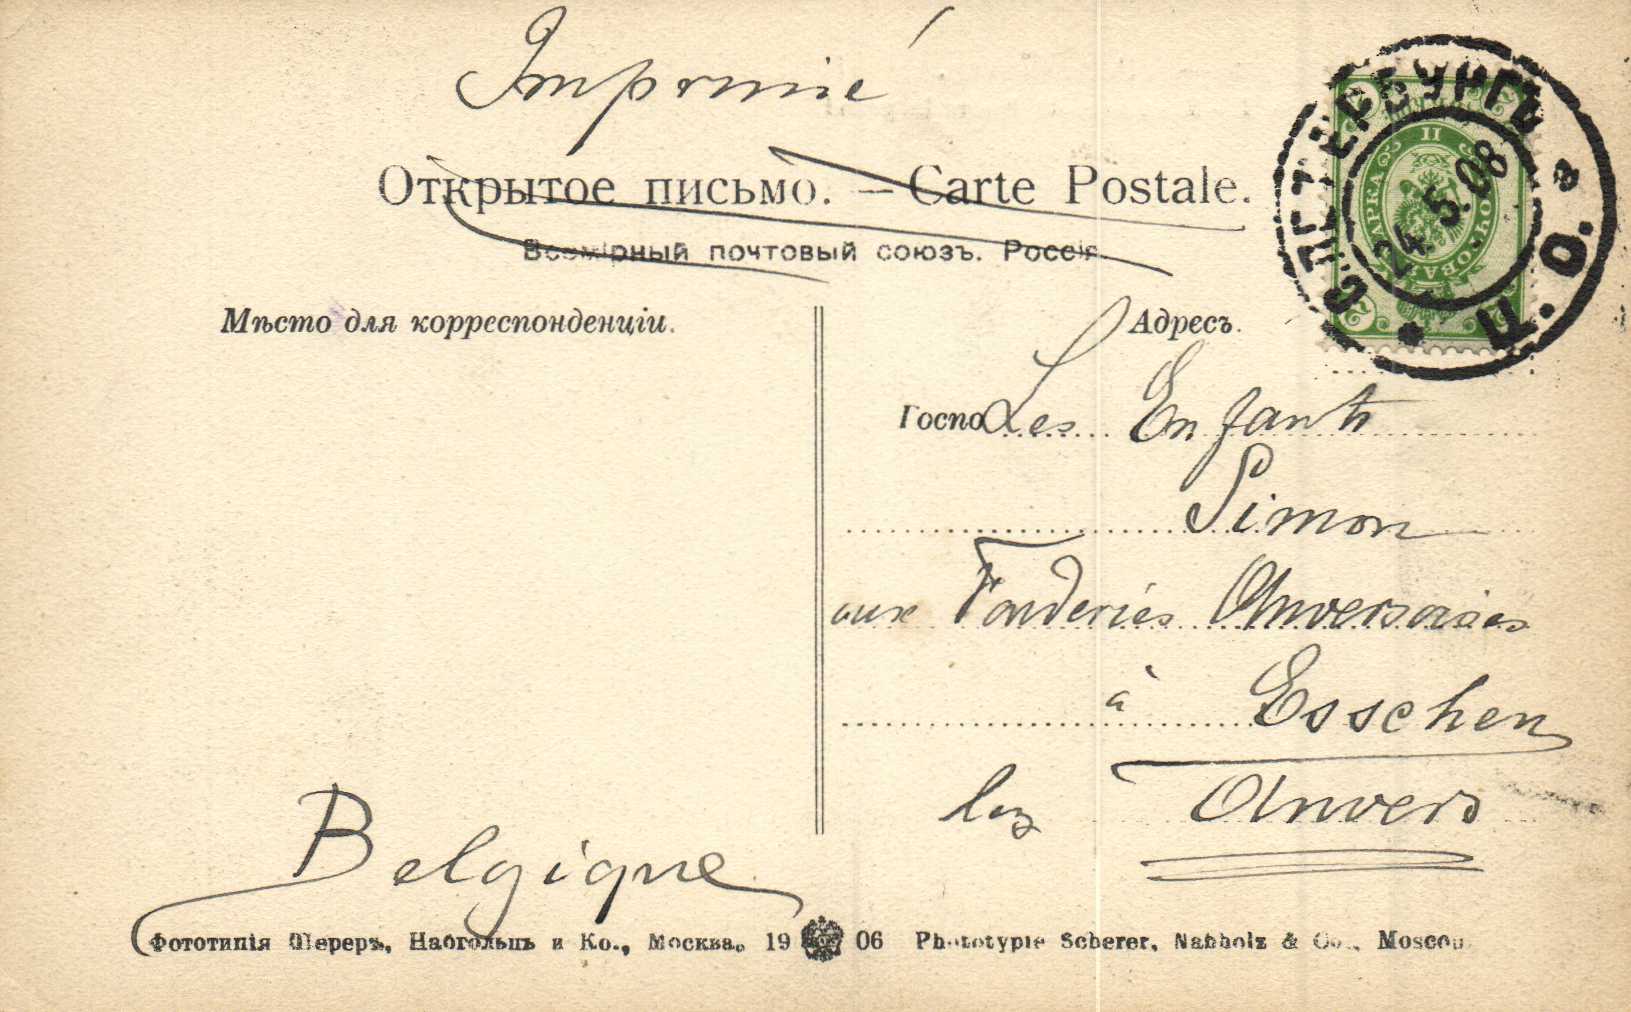 Imprimé
Открытое письмо. — Carte Postale.
Всемірный почтовый союзъ. Россія.
Мѣсто для корреспонденціи.
Адресъ.
С.ПЕТЕРБУРГЪ
24.5.08
П. О.
ПОЧТОВАЯ МАРКА
Госпо Les Enfants
Simon
aux Fonderies Anversoises
à Esschen
lez Anvers
Belgique
Фототипія Шереръ, Набгольцъ и Ко., Москва. 19 06 Phototypie Scherer, Nabholz & Co., Moscou.